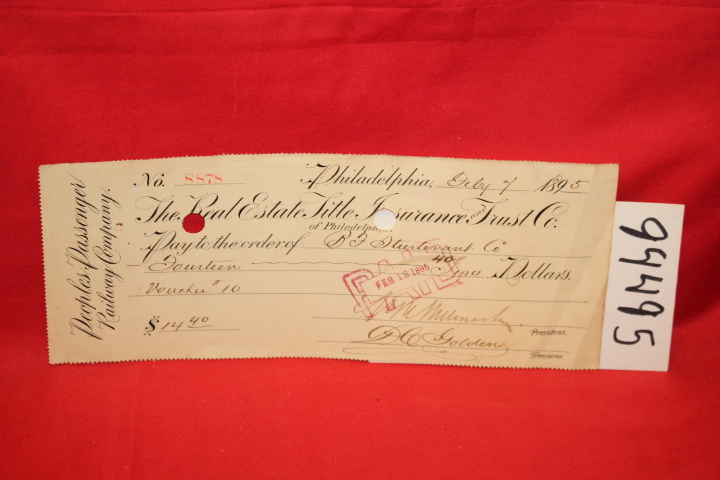 Peoples Passenger
Railway Company.
No. 8878 Philadelphia, Feby 7 1895
The Real Estate Title Insurance and Trust Co.
of Philadelphia
Pay to the order of B F Sturtevant Co
Fourteen 40/100 Dollars.
Voucher # 10
PAID
FEB 19 1895
$ 14 40
President.
D C Golden
Treasurer
99495